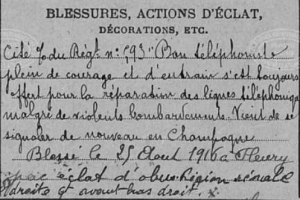 BLESSURES, ACTIONS D'ÉCLAT,
DÉCORATIONS, ETC.
Cité du Régt n: 593 "Bon téléphoniste
plein de courage et d'entrain s'est toujours
offert pour la réparation des lignes téléphoniq
malgré de violents bombardements. Vient de se
signaler de nouveau en Champagne
Blessé le 25 Aout 1916 a Fleury
éclat d'obus Région
droite et avant bras droit.